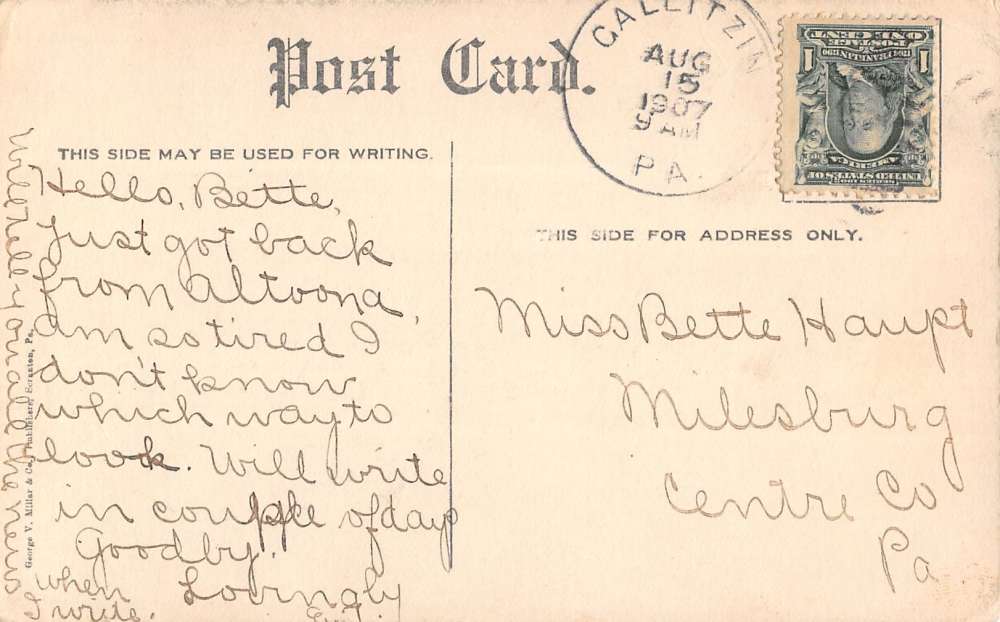 Post Card.
GALLITZIN
AUG
15
1907
9 AM
PA.
ONE CENT
POSTAGE
1 1
AMERICA
UNITED STATES OF
SERIES 1902
THIS SIDE MAY BE USED FOR WRITING.
THIS SIDE FOR ADDRESS ONLY.
Hello, Bette,
Just got back
from Altoona,
am so tired I
don't know
which way to
look. Will write
in couple of days
Goodby.
Lovingly
Will tell you all the news
when
I write.
George V. Millar & Co., Publishers, Scranton, Pa.
Miss Bette Haupt
Milesburg
Centre Co
Pa